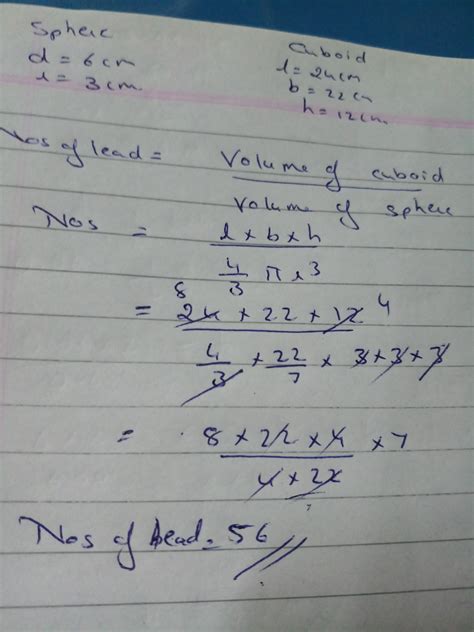 Sphere
d = 6 cm
r = 3 cm.
Cuboid
l = 24 cm
b = 22 cm
h = 12 cm.
Nos of lead = Volume of cuboid
Volume of sphere
Nos = l × b × h
4/3 π r³
8 4
= 24 × 22 × 12
4/3 × 22/7 × 3 × 3 × 3
= 8 × 22 × 4 × 7
4 × 22
Nos of lead = 56